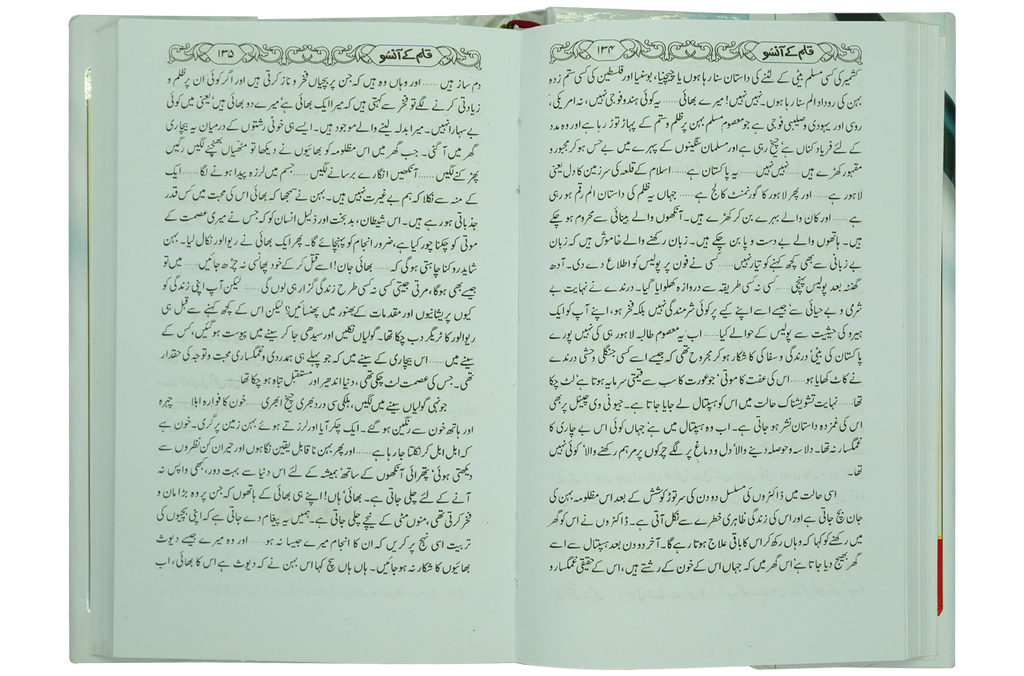 قلم کے آنسو ۱۳۴
کشمیر کی کسی مسلم بیٹی کے لٹنے کی داستان سنا رہا ہوں یا چیچنیا، بوسنیا اور فلسطین کی کسی ستم زدہ
بہن کی روداد الم سنا رہا ہوں۔ نہیں نہیں! میرے بھائی...... یہ کوئی ہندو فوجی نہیں، نہ امریکی،
روسی اور یہودی و صلیبی فوجی ہے جو معصوم مسلم بہن پر ظلم و ستم کے پہاڑ توڑ رہا ہے اور وہ مدد
کے لئے فریاد کناں ہے چیخ رہی ہے اور مسلمان سنگینوں کے پہرے میں بے حس ہو کر مجبور و
مقہور کھڑے ہیں ...... نہیں نہیں ...... یہ پاکستان ہے ...... اسلام کے قلعہ کی سرزمین کا دل یعنی
لاہور ہے...... اور پھر لاہور کا گورنمنٹ کالج ہے...... جہاں یہ ظلم کی داستان الم رقم ہو رہی
ہے...... اور کان والے بہرے بن کر کھڑے ہیں۔ آنکھوں والے بینائی سے محروم ہو چکے
ہیں۔ ہاتھوں والے بے دست و پا بن چکے ہیں۔ زبان رکھنے والے خاموش ہیں کہ زبان
بے زبانی سے بھی کچھ کہنے کو تیار نہیں...... کسی نے فون پر پولیس کو اطلاع دے دی۔ آدھ
گھنٹہ بعد پولیس پہنچی ...... کسی نہ کسی طریقہ سے دروازہ کھلوایا گیا۔ درندے نے نہایت بے
شرمی و بے حیائی سے جیسے اسے اپنے کیے پر کوئی شرمندگی نہیں بلکہ فخر ہو، اپنے آپ کو ایک
ہیرو کی حیثیت سے پولیس کے حوالے کیا...... اب یہ معصوم طالبہ لاہور ہی کی نہیں پورے
پاکستان کی بیٹی درندگی و سفاکی کا شکار ہو کر مجروح تھی کہ جیسے اسے کسی جنگلی وحشی درندے
نے کاٹ کھایا ہو...... اس کی عفت کا موتی جو عورت کا سب سے قیمتی سرمایہ ہوتا ہے لٹ چکا
تھا...... نہایت تشویشناک حالت میں اس کو ہسپتال لے جایا جاتا ہے۔ جیو ٹی وی چینل پر بھی
اس کی غمزدہ داستان نشر ہو جاتی ہے۔ اب وہ ہسپتال میں ہے جہاں کوئی اس بے چاری کا
غمگسار نہ تھا۔ دلاسہ و حوصلہ دینے والا دل و دماغ پر لگے چرکوں پر مرہم رکھنے والا کوئی نہیں
تھا۔
اسی حالت میں ڈاکٹروں کی مسلسل دو دن کی سر توڑ کوشش کے بعد اس مظلومہ بہن کی
جان بچ جاتی ہے اور اس کی زندگی ظاہری خطرے سے نکل آتی ہے۔ ڈاکٹروں نے اس کو گھر
میں رکھنے کو کہا کہ وہاں رکھ کر اس کا باقی علاج ہوتا رہے گا۔ آخر دو دن بعد ہسپتال سے اسے
گھر بھیج دیا جاتا ہے اس گھر میں کہ جہاں اس کے خون کے رشتے ہیں، اس کے حقیقی غمگسار و
قلم کے آنسو ۱۳۵
دم ساز ہیں ...... اور وہاں وہ ہیں کہ جن پر بچیاں فخر و ناز کرتی ہیں اور اگر کوئی ان پر ظلم و
زیادتی کرنے لگے تو فخر سے کہتی ہیں کہ میرا ایک بھائی ہے میرے دو بھائی ہیں یعنی میں کوئی
بے سہارا نہیں۔ میرا بدلہ لینے والے موجود ہیں۔ ایسے ہی خونی رشتوں کے درمیان یہ بیچاری
گھر میں آ گئی۔ جب گھر میں اس مظلومہ کو بھائیوں نے دیکھا تو مٹھیاں بھنچنے لگیں رگیں
پھڑکنے لگیں...... آنکھیں انگارے برسانے لگیں...... جسم میں لرزہ پیدا ہونے لگا...... ایک
کے منہ سے نکلا کہ ہم بے غیرت نہیں ہیں۔ بہن نے سمجھا کہ بھائی اس کی محبت میں کس قدر
جذباتی ہو رہے ہیں۔ اس شیطان، بدبخت اور ذلیل انسان کو کہ جس نے میری عصمت کے
موتی کو چکنا چور کیا ہے، ضرور انجام کو پہنچائے گا۔ پھر ایک بھائی نے ریوالور نکال لیا۔ بہن
شاید روکنا چاہتی ہوگی کہ...... بھائی جان! اسے قتل کر کے خود پھانسی نہ چڑھ جائیں...... میں تو
جیسے بھی ہوگا، مرتی جیتی کسی نہ کسی طرح زندگی گزار ہی لوں گی ...... لیکن آپ اپنی زندگی کو
کیوں پریشانیوں اور مقدمات کے بھنور میں پھنسائیں؟ لیکن اس کے کچھ کہنے سے قبل ہی
ریوالور کا ٹریگر دب چکا تھا۔ گولیاں نکلیں اور سیدھی جا کر سینے میں پیوست ہو گئیں، کس کے
سینے میں...... اس بیچاری کے سینے میں کہ جو پہلے ہی ہمدردی و غمگساری محبت و توجہ کی حقدار
تھی۔ جس کی عصمت لٹ چکی تھی، دنیا اندھیر اور مستقبل تباہ ہو چکا تھا......
جونہی گولیاں سینے میں لگیں، ہلکی سی درد بھری چیخ ابھری...... خون کا فوارہ ابلا...... چہرہ
اور ہاتھ خون سے رنگین ہو گئے۔ ایک چکر آیا اور لرزتے ہوئے بہن زمین پر گری۔ خون ہے
کہ ابل ابل کر نکلتا جا رہا ہے...... اور پھر بہن نا قابل یقین نگاہوں اور حیران کن نظروں سے
دیکھتی ہوئی پتھرائی آنکھوں کے ساتھ ہمیشہ کے لئے اس دنیا سے بہت دور، کبھی واپس نہ
آنے کے لئے چلی جاتی ہے۔ بھائی ہاں! اپنے ہی بھائی کے ہاتھوں کہ جن پر وہ بڑا مان و
فخر کرتی تھی، منوں مٹی کے نیچے چلی جاتی ہے۔ ہمیں یہ پیغام دے جاتی ہے کہ اپنی بچیوں کی
تربیت اسی نہج پر کریں کہ ان کا انجام میرے جیسا نہ ہو...... اور وہ میرے جیسے دیوث
بھائیوں کا شکار نہ ہو جائیں۔ ہاں ہاں سچ کہا اس بہن نے کہ دیوث ہے اس کا بھائی، اب